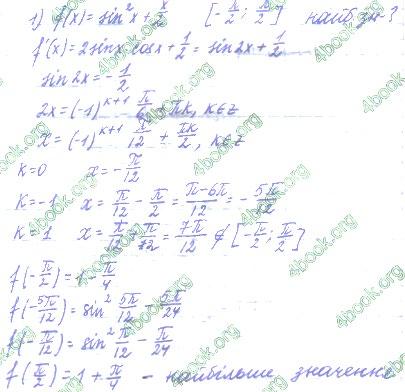 1) f(x) = sin²x + x/2   [-π/2; π/2]   найб. зн - ?
f'(x) = 2sinx cosx + 1/2 = sin2x + 1/2
sin2x = -1/2
2x = (-1)^(k+1) π/6 + πk, k∈z
x = (-1)^(k+1) π/12 + πk/2, k∈z
k=0   x = -π/12
k=-1   x = π/12 - π/2 = (π-6π)/12 = -5π/12
k=1   x = π/12 + π/2 = 7π/12 ∉ [-π/2; π/2]
f(-π/2) = 1 - π/4
f(-5π/12) = sin² 5π/12 - 5π/24
f(-π/12) = sin² π/12 - π/24
f(π/2) = 1 + π/4 - найбільше значення
4book.org